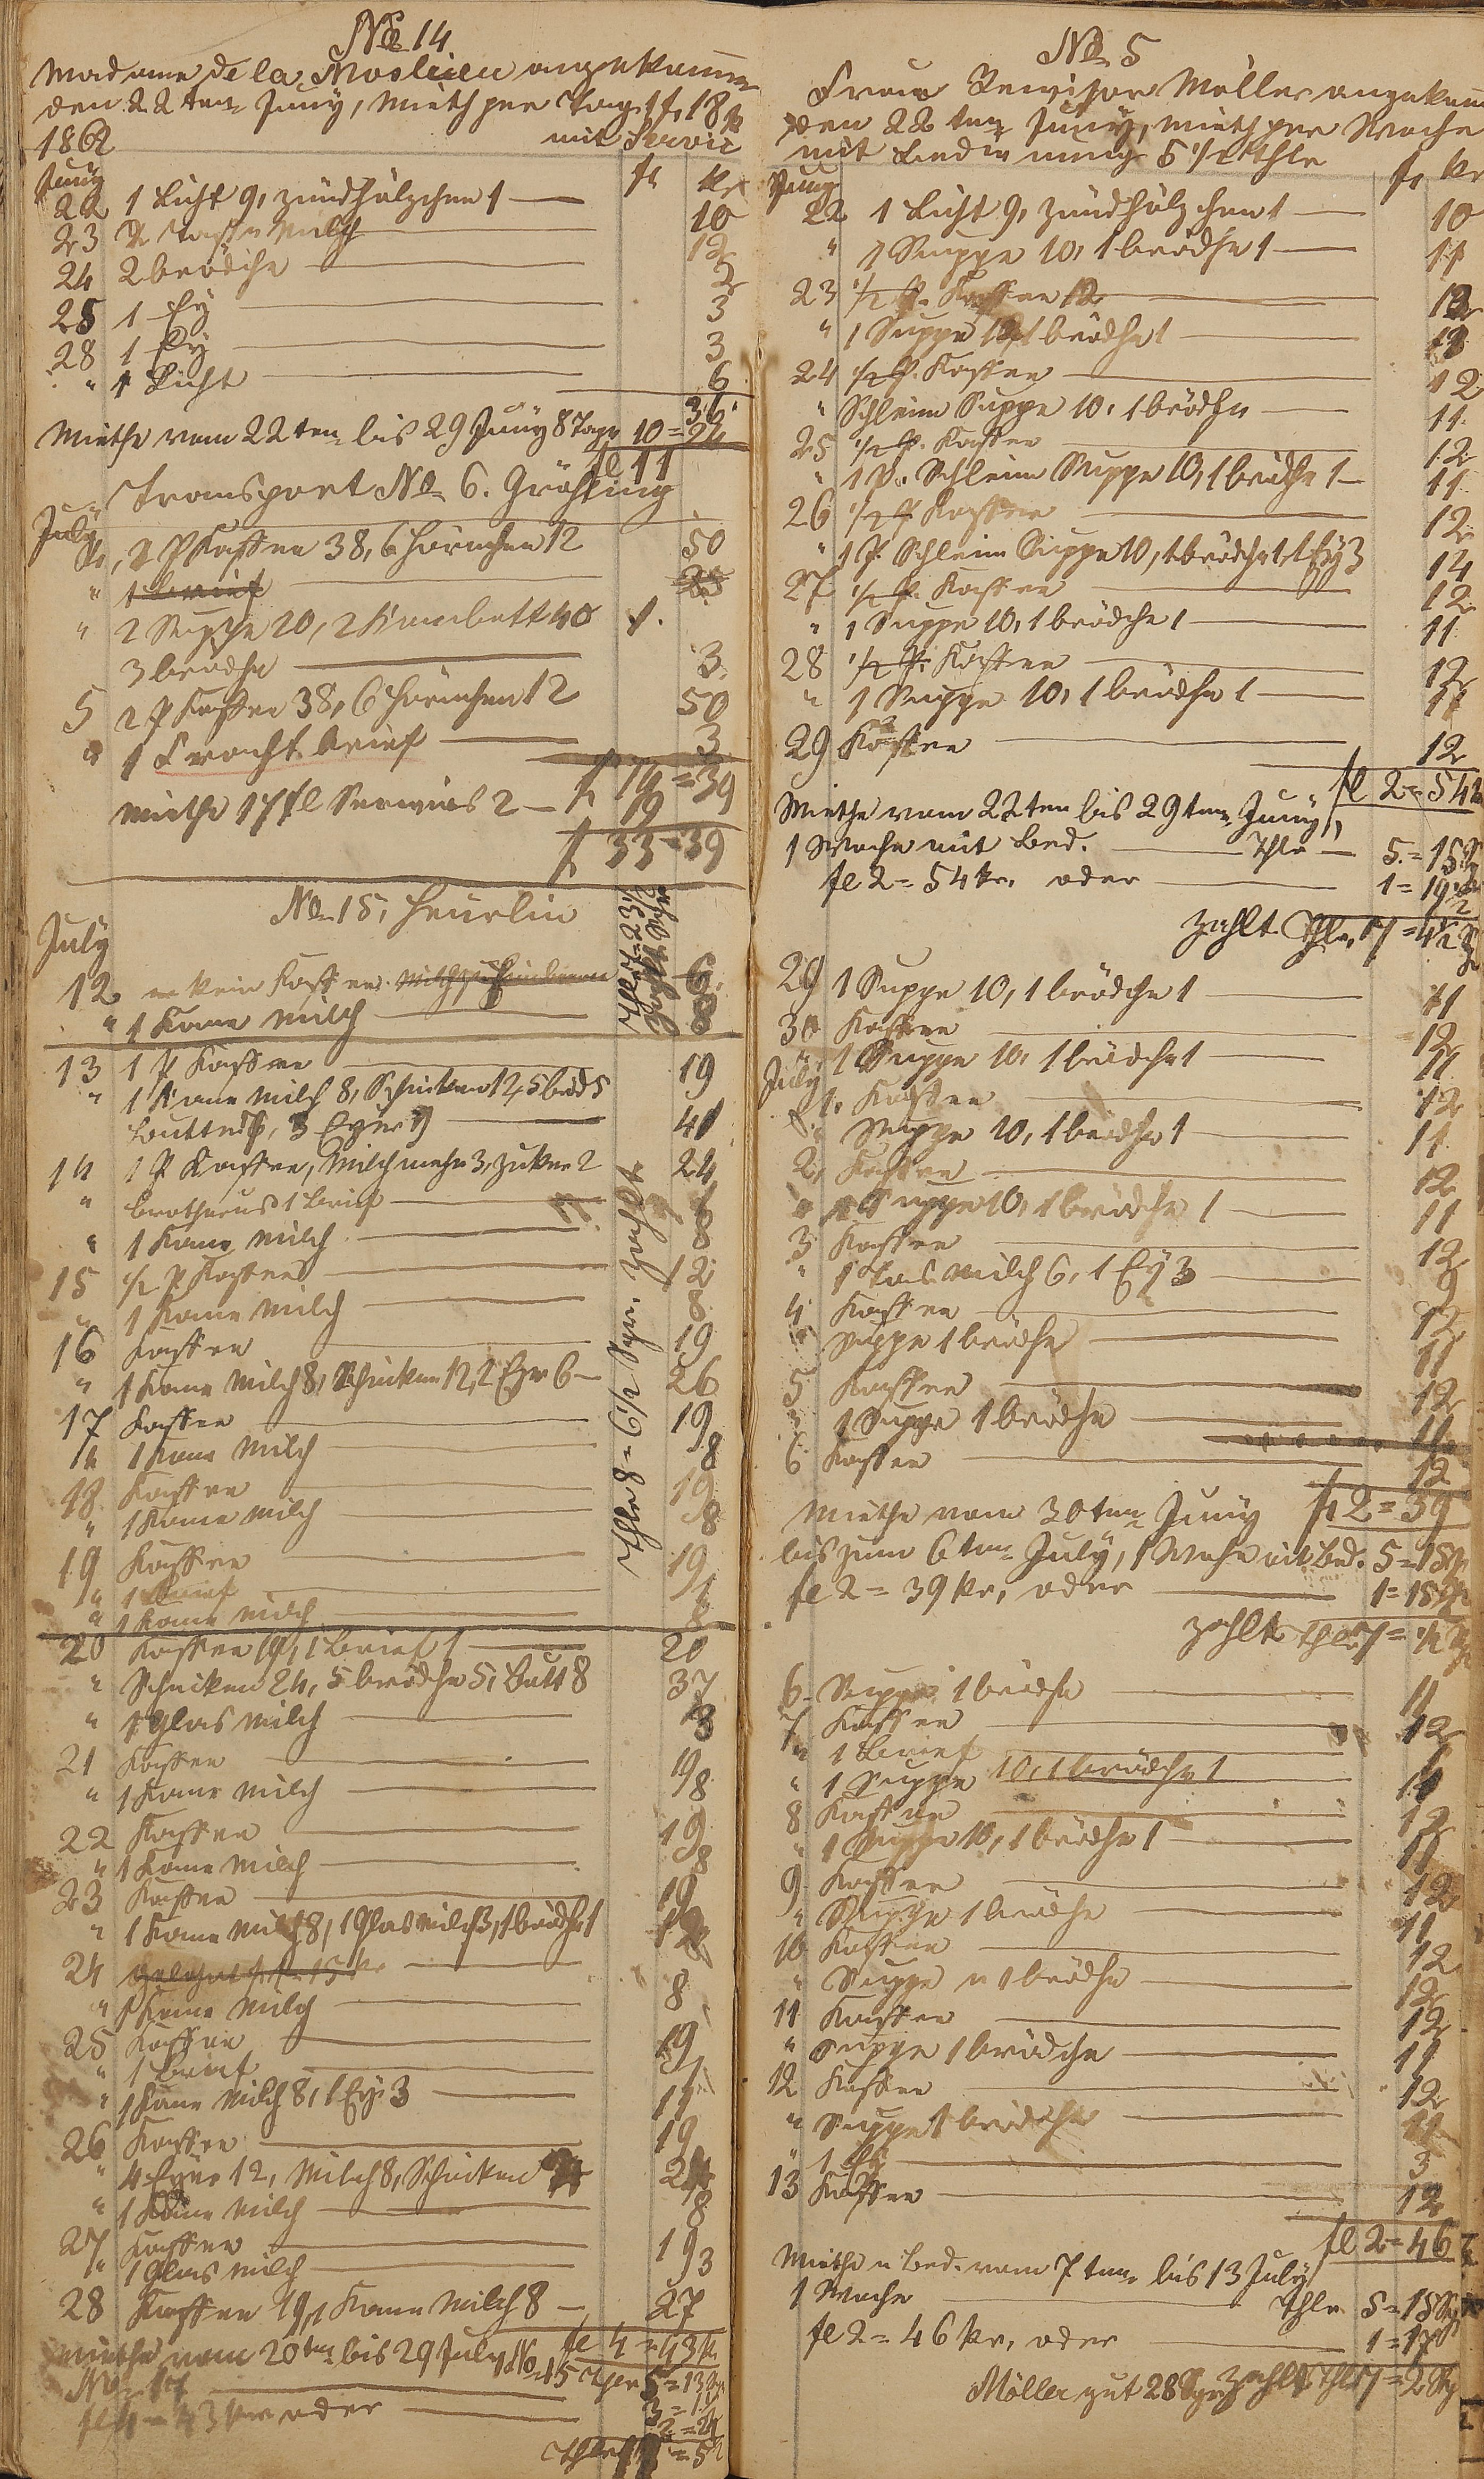 No 14
Madame de la angekommen
den 22ten Juny, Mieth per Tag 1 f. 18 k
1862 mit Servic
Juny fl kr
22 1 Licht 9, zündhölzchen 1 — 10
23 2 Tassen Milch — 12
24 2 brödche — 2
25 1 Ey — 3
28 1 Ey — 3
" 1 Licht — 6
36
Miethe vom 22ten bis 29 Juny 8 Tage 10 = 24
fl 11
Transport No 6. Gräfting
July
4, 2 P Kaffee 38, 6 Hörnchen 12 50
" 1 brief — 25
" 2 Suppe 20, 2 40 1.
3 brödche — 3.
5 2 P Kaffee 38, 6 Hörnchen 12 50
" 1 Fracht brief — 3
f 14 = 39
Miethe 17 fl Servirs 2 — 19
f 33 = 39
No 15, Heurlin
July
12 kein Kaffee. Milch 6.
" 1 Kane Milch — 8
13 1 P Kaffee — 19
" 1 Kane Milch 8, Schinken 12, 5 bröd 5
butter 8, 3 Eyer 9 — 41
14 1 P Kaffee, Milch mehr 3, zuker 2 24
" 1 brief — 1
" 1 Kane Milch — 8
15 1/2 P Kaffee — 12
" 1 Kane Milch — 8
16 Kaffee — 19
" 1 Kane Milch 8, Schinken 12, 2 Eyer 6 — 26
17 Kaffee — 19
" 1 Kane Milch — 8
18 Kaffee — 19
" 1 Kane Milch — 8
19 Kaffee — 19
" 1 brief — 1
" 1 Kane Milch — 8
20 Kaffee 19, 1 Brief 1 — 20
" Schinken 24, 5 brödche 5, Butt 8 37
" 1 Glas Milch — 3
21 Kaffee — 19
" 1 Kane Milch — 8
22 Kaffee — 19
" 1 Kane Milch — 8
23 Kaffee — 19
" 1 Kane Milch 8, 1 Glas Milch 3, 1 brödche 1 12
24 —
" 1 Kane Milch — 8
25 Kaffee — 19
" 1 brief — 1
" 1 Kane Milch 8, 1 Ey 3 — 11
26 Kaffee — 19
" 4 Eyer 12, Milch 8, Schinken 24
" 1 Kane Milch — 8
27 Kaffee — 19
" 1 Glas Milch — 3
28 Kaffee 19, 1 Kane Milch 8 — 27
fl 4 = 43 k
Miethe vom 20ten bis 29 July No 15 Thlr 5 = 13 Sgr
fl 4 = 43 kr oder —
Thlr 8 = 6 1/2 Sgr. zahlt
No 5
Frau Revisor Möller angekom
den 22ten Juny, Mieth per Woche
mit Bedienung 5 1/2 thlr
Juny f, kr
22 1 Licht 9, zündhölzchen 1 — 10
" 1 Suppe 10, 1 brödche 1 — 11
23 1/2 P. Kaffee 12 — 12
" 1 Suppe 1 brödche 1 — 13
24 1/2 P. Kaffee — 12
" Schleim Suppe 10, 1 brödche — 11
25 1/2 P. Kaffee — 12
" 1 P. Schleim Suppe 10, 1 brödche 1 — 11
26 1/2 P Kaffee — 12
" 1 P Schleim Suppe 10, 1 brödche 1, 1 Ey 3 14
27 1/2 P. Kaffee — 12
" 1 Suppe 10, 1 brödche 1 — 11
28 1/2 P. Kaffee — 12
" 1 Suppe 10, 1 brödche 1 — 11
29 Kaffee — 12
fl 2 = 54 k
Miethe vom 22ten bis 29ten Juny,
1 Woche mit Bed. — Thlr — 5 = 15 S
fl 2 = 54 kr. oder — 1 = 19 1/2
zahlt Thlr. 7 = 4 1/2 S
29 1 Suppe 10, 1 brödche 1 — 11
30 Kaffee — 12
" 1 Suppe 10, 1 brödche 1 — 11
July
1. Kaffee — 12
" Suppe 10, 1 brödche 1 — 11
2, Kaffee — 12
" 1 Suppe 10, 1 brödche 1 — 11
3 Kaffee — 12
" 1 Tas Milch 6, 1 Ey 3 — 9
4 Kaffee — 12
" Suppe 1 brödche — 11
5 Kaffee — 12
" 1 Suppe 1 brödche — 11
6 Kaffee — 12
Miethe vom 30ten Juny f. 2 = 39
bis zum 6ten July, 1 Woche mit Bed. 5 = 15 Sgr
fl 2 = 39 kr, oder — 1 = 15 Sgr
zahlt Thlr 7 = 1/2 Sgr
6. Suppe 1 brödche — 11
7 Kaffee — 12
" 1 Brief — 1
" 1 Suppe 10, 1 brödche 1 11
8 Kaffee — 12
" 1 Suppe 10, 1 brödche 1 — 11
9 Kaffee — 12
" Suppe 1 brödche — 11
10 Kaffee — 12
" Suppe u 1 brödche — 12
11 Kaffee — 12
" Suppe 1 brödche — 11
12 Kaffee — 12
" Suppe 1 brödche — 11
" 1 Ey — 3
13 Kaffee — 12
fl 2 = 46
Miethe u Bed. vom 7ten bis 13 July
1 Woche — Thlr. 5 = 15 Sgr
fl 2 = 46 kr, oder — 1 = 17
Möller gut 28 Sgr zahlt Thlr 7 = 2 Sg